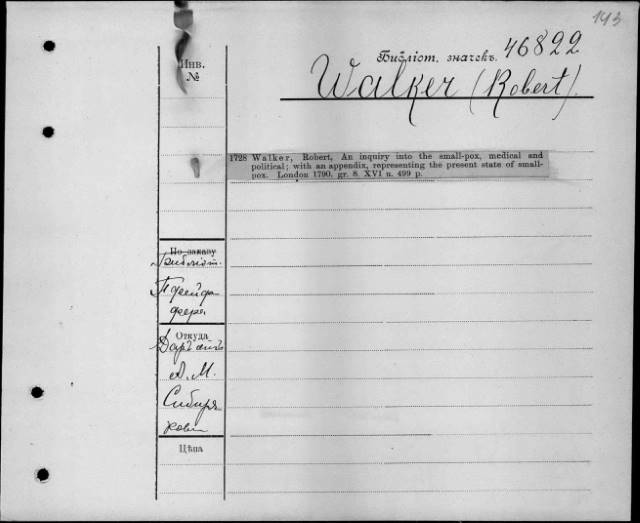 143
Библіот. значекъ. 46822
Walker (Robert).
Инв.
№
1728 Walker, Robert, An inquiry into the small-pox, medical and
political; with an appendix, representing the present state of small-
pox. London 1790. gr. 8. XVI u. 499 p.
По заказу
Библіот.
Пфейф
фера
Откуда
Даръ
А. М.
Сибиря
кова
Цѣна